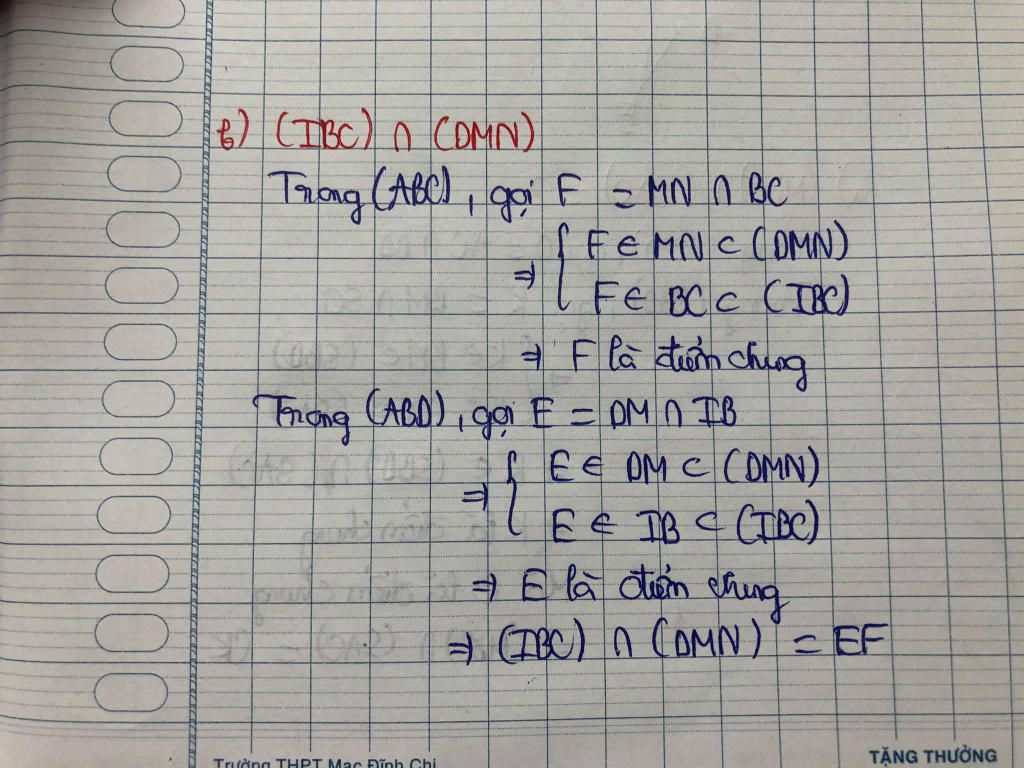 b) (IBC) ∩ (DMN)
Trong (ABC), gọi F = MN ∩ BC
⇒ { F ∈ MN ⊂ (DMN)
F ∈ BC ⊂ (IBC)
⇒ F là điểm chung
Trong (ABD), gọi E = DM ∩ IB
⇒ { E ∈ DM ⊂ (DMN)
E ∈ IB ⊂ (IBC)
⇒ E là điểm chung
⇒ (IBC) ∩ (DMN) = EF
Trường THPT Mạc Đĩnh Chi
TẶNG THƯỞNG